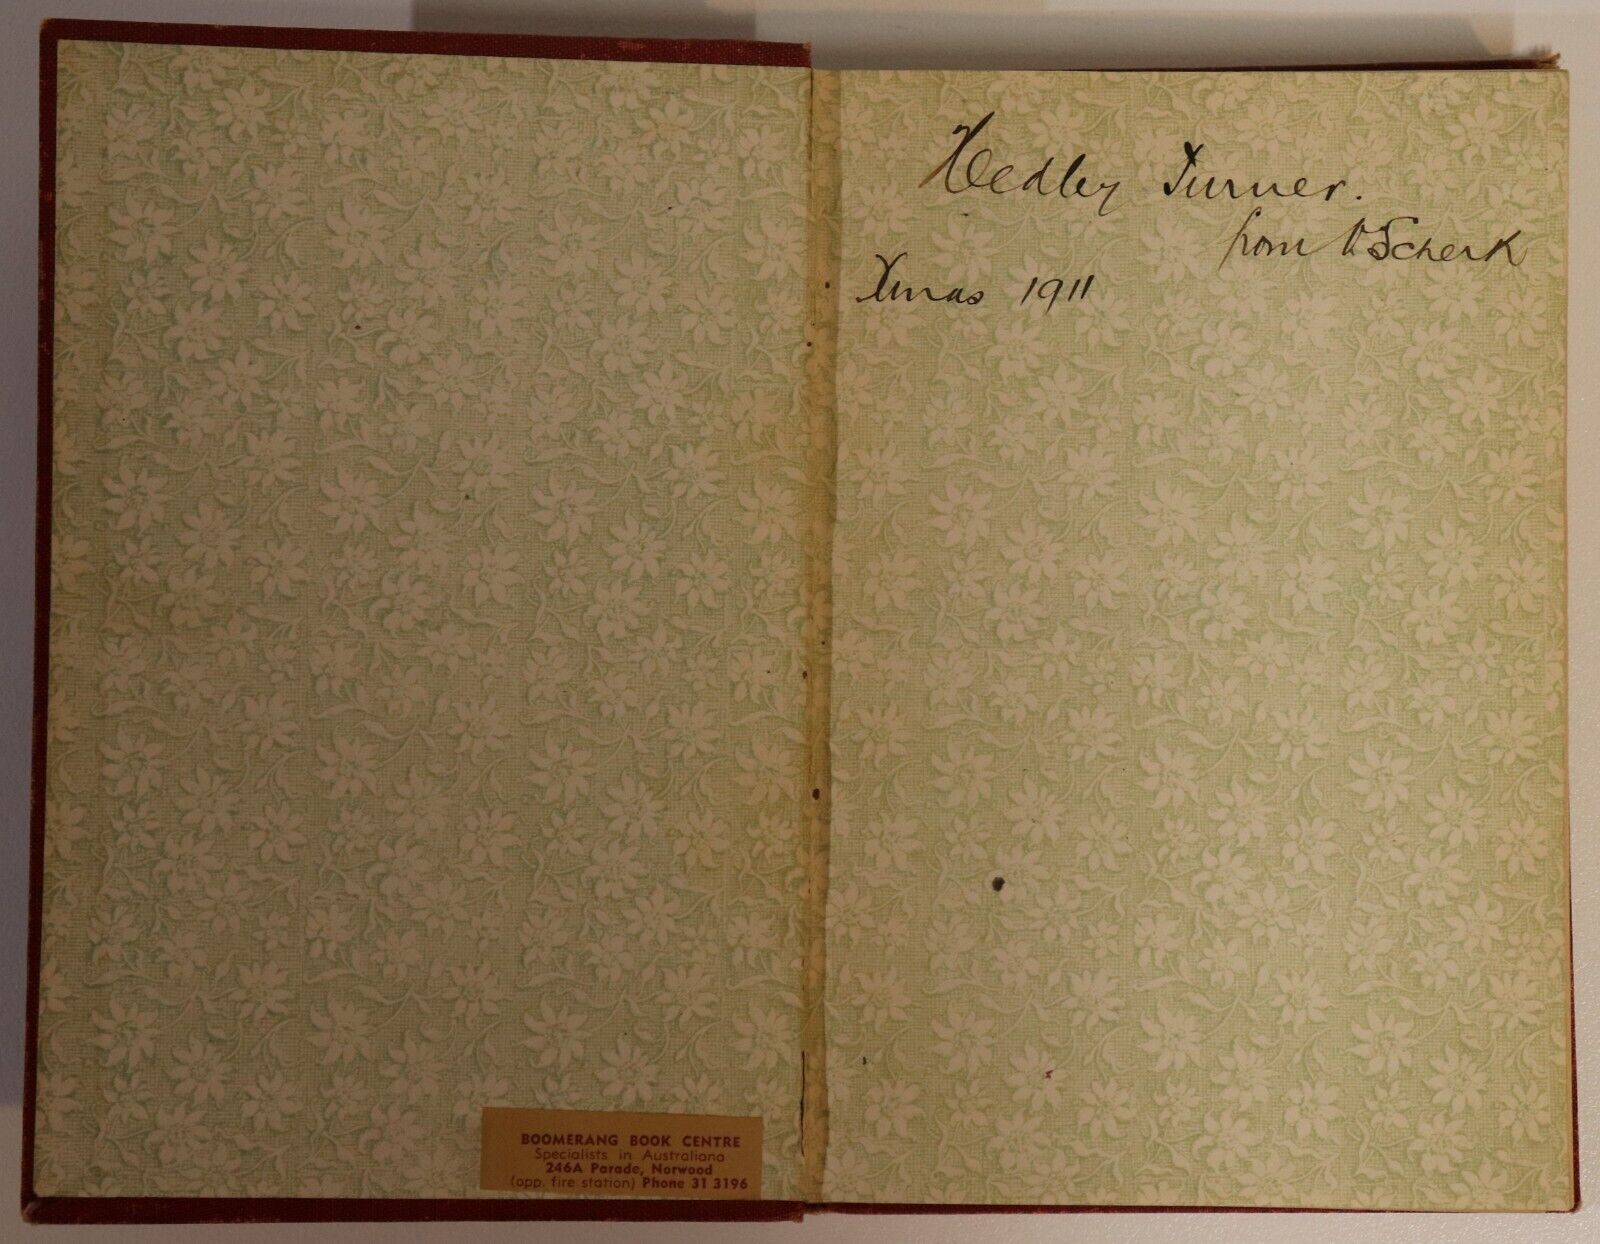 Hedley Turner.
from Scherk
Xmas 1911
BOOMERANG BOOK CENTRE
Specialists in Australiana
246A Parade, Norwood
(opp. fire station) Phone 31 3196